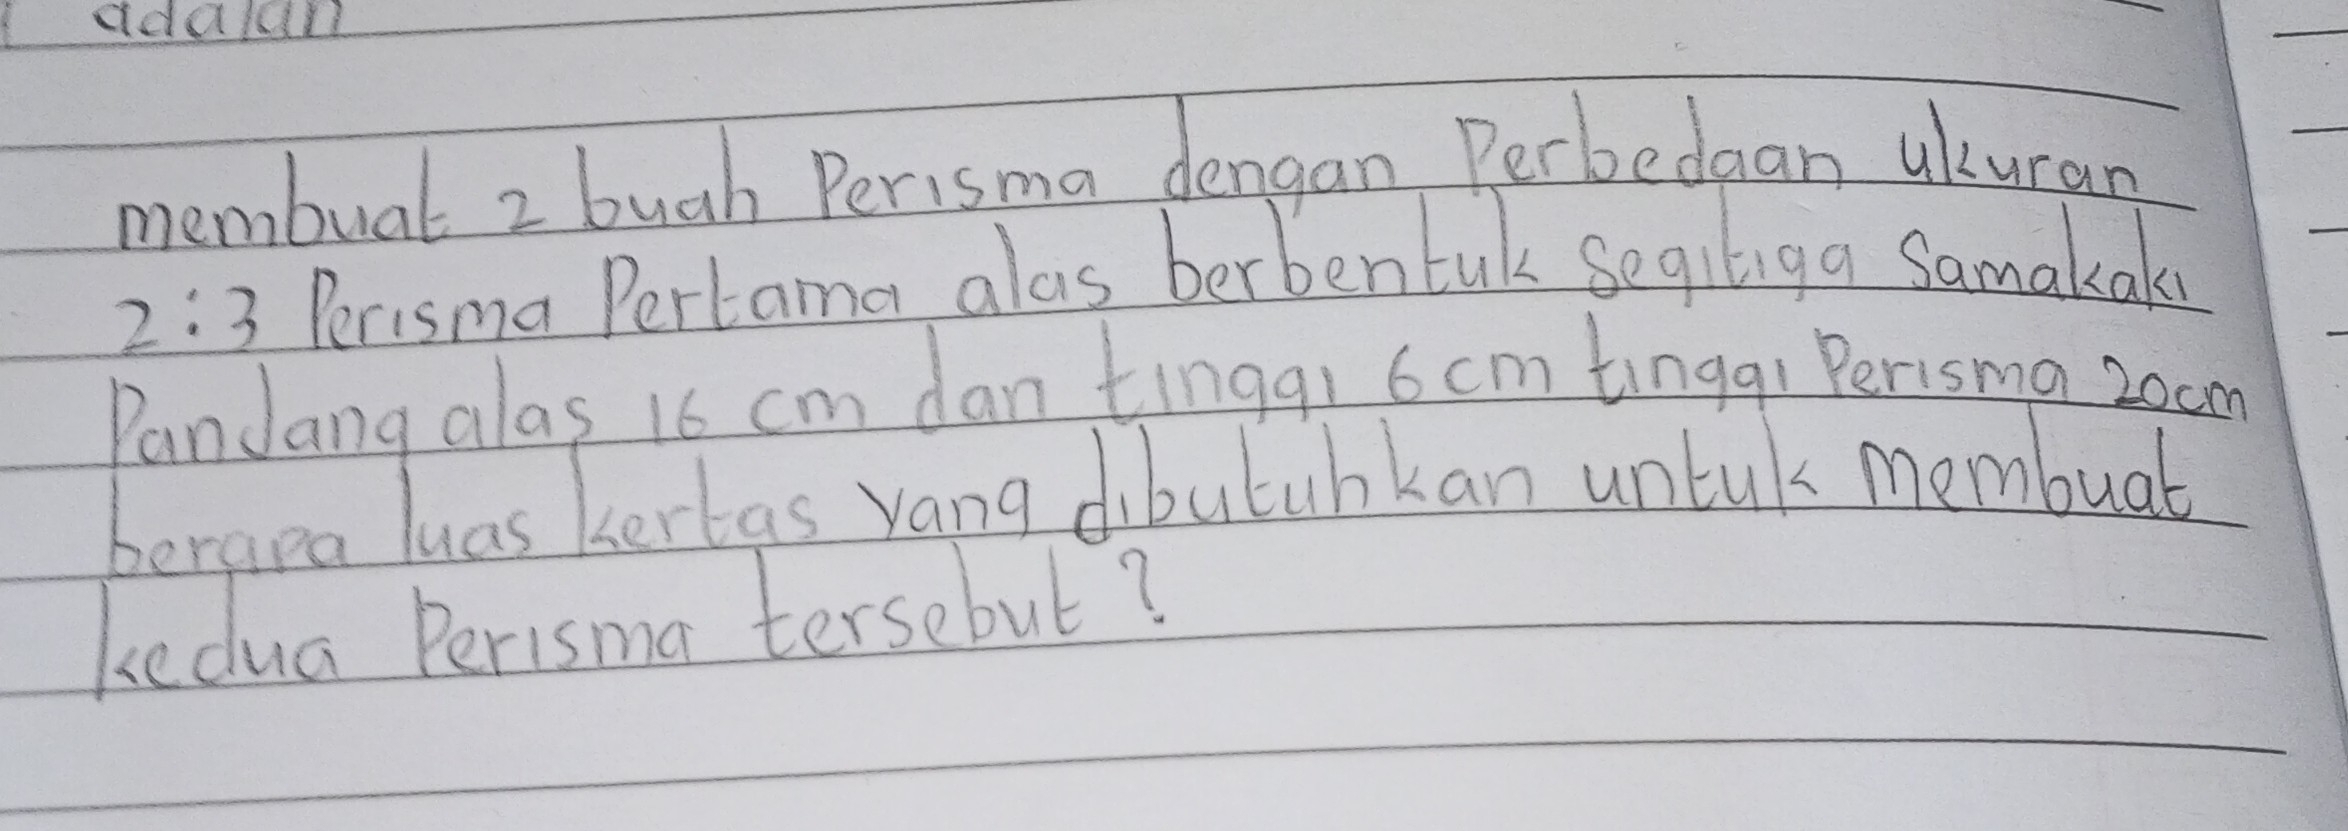 adalah
membuat 2 buah Perisma dengan Perbedaan ukuran
2:3 Perisma Pertama alas berbentuk segitiga Samakaki
Pandang alas 16 cm dan tinggi 6 cm tinggi Perisma 20cm
berapa luas kertas yang dibutuhkan untuk membuat
kedua Perisma tersebut?